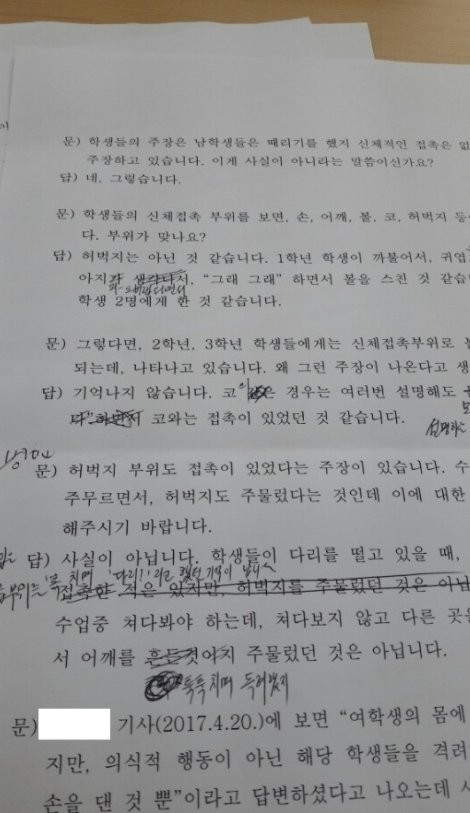 문) 학생들의 주장은 남학생들은 때리기를 했지 신체적인 접촉은 없
주장하고 있습니다. 이게 사실이 아니라는 말씀이신가요?
답) 네, 그렇습니다.
문) 학생들의 신체접촉 부위를 보면, 손, 어깨, 볼, 코, 허벅지 등
다. 부위가 맞나요?
답) 허벅지는 아닌 것 같습니다. 1학년 학생이 까불어서, 귀엽
아지 생각나서, “그래 그래” 하면서 볼을 스친 것 같습
학생 2명에게 한 것 같습니다.
문) 그렇다면, 2학년, 3학년 학생들에게는 신체접촉부위로 볼
되는데, 나타나고 있습니다. 왜 그런 주장이 나온다고 생
답) 기억나지 않습니다. 코의 경우는 여러번 설명해도
다”하면서 코와는 접촉이 있었던 것 같습니다.
설명하는
문) 허벅지 부위도 접촉이 있었다는 주장이 있습니다. 수
주무르면서, 허벅지도 주물렀다는 것인데 이에 대한
해주시기 바랍니다.
답) 사실이 아닙니다. 학생들이 다리를 떨고 있을 때,
툭 치며 '다리!' 라고 했던 기억이
접촉한 적은 있지만, 허벅지를 주물렀던 것은 아닙
수업중 쳐다봐야 하는데, 쳐다보지 않고 다른 곳을
서 어깨를 흔든것이지 주물렀던 것은 아닙니다.
툭툭 치며
문) 기사(2017.4.20.)에 보면 “여학생의 몸에
지만, 의식적 행동이 아닌 해당 학생들을 격려
손을 댄 것 뿐”이라고 답변하셨다고 나오는데 사